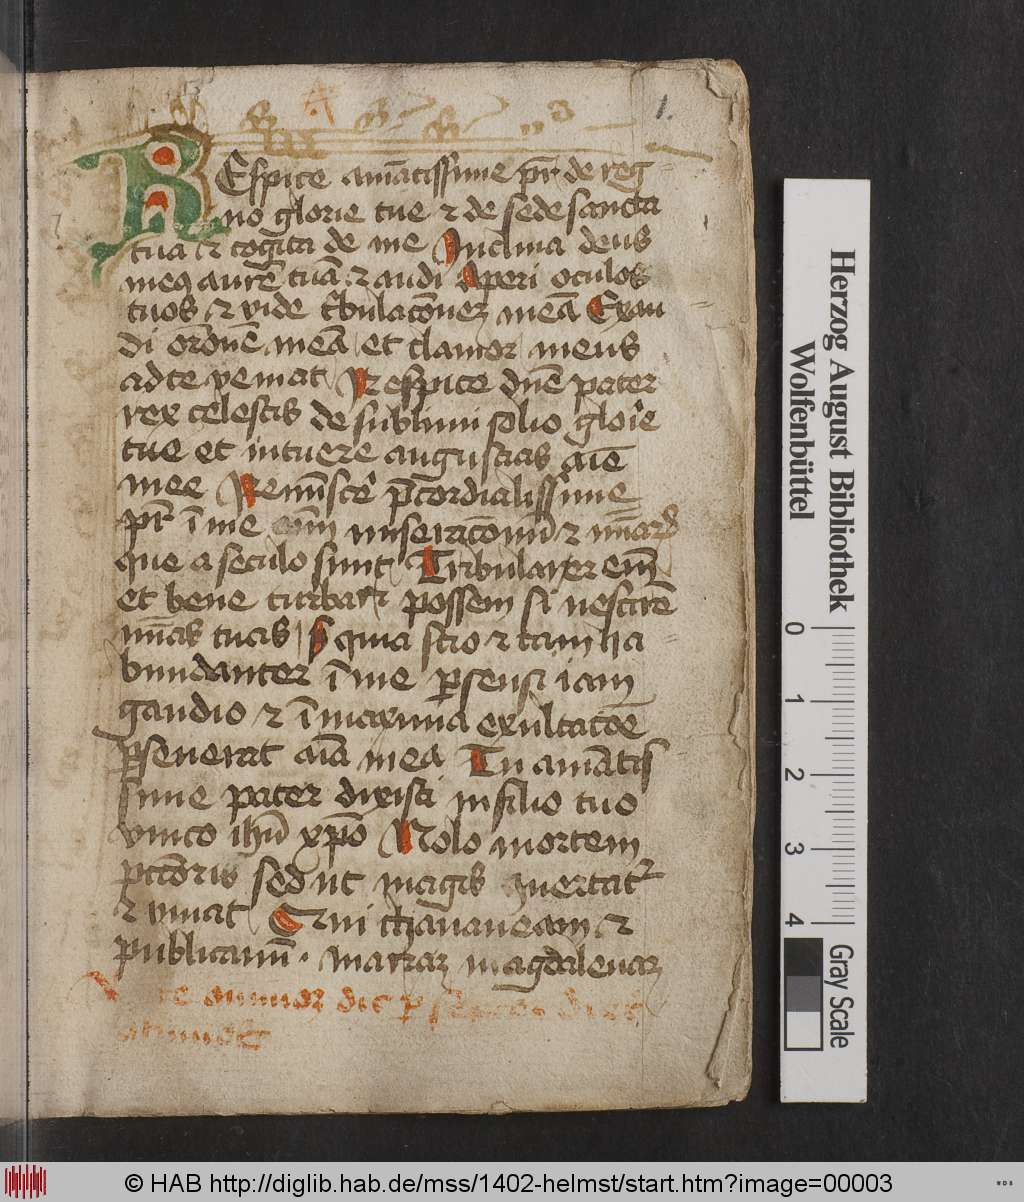 1.
REspice amātissime pr̄ de reg
no glorie tue ⁊ de sede sancta
tua ⁊ cogita de me Inclina deus
meus aurē tuā ⁊ audi Aperi oculos
tuos ⁊ vide t'bulacōnem meā Exau
di orōnem meā et clamor meus
ad te veniat Respice dn̄e pater
rex celestis de sublimi solio glorie
tue et intuere angustias aīe
mee Reminiscer' p̄cordialissime
pr̄ miseracōnū ⁊
que a seculo sunt Tribularer em̄
et bene turbari possem si nescirē
mīas tuas sȝ quia scio ⁊ tam ha
bundanter ī me persensi iam
gaudio ⁊ ī maxima exultacōe
perseuerat aīa mea Tu amātis
sime pater dixisti in filio tuo
vnico ihū xp̄o Nolo mortem
pctōris sed ut magis ꝯuertatur
⁊ viuat Qui chananeam ⁊
publicanū · mariam magdalenam
Herzog August Bibliothek
Wolfenbüttel
0 1 2 3 4
Gray Scale
© HAB http://diglib.hab.de/mss/1402-helmst/start.htm?image=00003